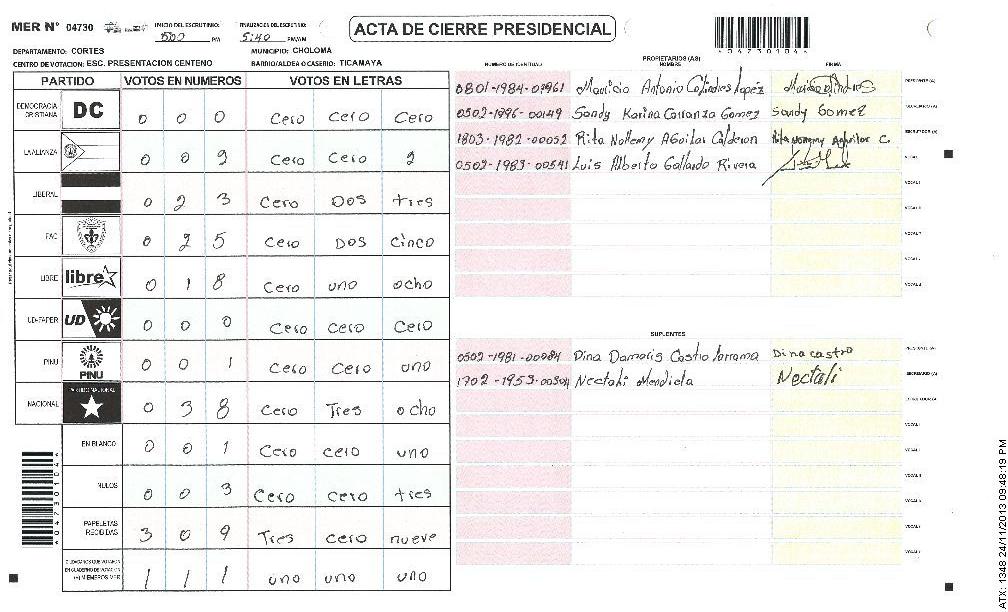 MER N° 04730 INICIO DEL ESCRUTINIO: 5:00 PM FINALIZACION DEL ESCRUTINIO: 5:40 PM/AM
ACTA DE CIERRE PRESIDENCIAL
*04730104*
DEPARTAMENTO: CORTES MUNICIPIO: CHOLOMA
CENTRO DE VOTACION: ESC. PRESENTACION CENTENO BARRIO/ALDEA O CASERIO: TICAMAYA
PARTIDO VOTOS EN NUMEROS VOTOS EN LETRAS
DEMOCRACIA CRISTIANA DC 0 0 0 Cero Cero Cero
LA ALIANZA 0 0 2 Cero Cero 2
LIBERAL 0 2 3 Cero DOS tres
FAC 0 25 Cero DOS cinco
LIBRE libre 0 1 8 Cero uno ocho
UD-FAPER UD 0 0 0 Cero Cero Cero
PINU PINU 0 0 1 Cero Cero uno
NACIONAL PARTIDO NACIONAL 0 3 8 Cero Tres ocho
EN BLANCO 0 0 1 Cero cero uno
NULOS 0 0 3 Cero cero tres
PAPELETAS RECIBIDAS 3 0 9 Tres cero nueve
CIUDADANOS QUE VOTARON
EN CUADERNO DE VOTACION
(+) MIEMBROS MER 1 1 1 uno uno uno
*04730104*
PROPIETARIOS (AS)
NUMERO DE IDENTIDAD NOMBRE FIRMA
0801-1984-07961 Mauricio Antonio Colindres Lopez PRESIDENTE (A)
0502-1996-00149 Sandy Karina Carranza Gomez Sandy Gomez
1803-1982-00052 Rita Nohemy Aguilar Calderon Rita Nohemy Aguilar C. ESCRUTADOR (A)
0502-1983-00541 Luis Alberto Gallardo Rivera
SUPLENTES
0502-1981-00084 Dina Damaris Castro Dina castro PRESIDENTE (A)
1702-1953-00304 Nectali Mendieta Nectali SECRETARIO (A)
ATX: 1348 24/11/2013 09:48:19 PM